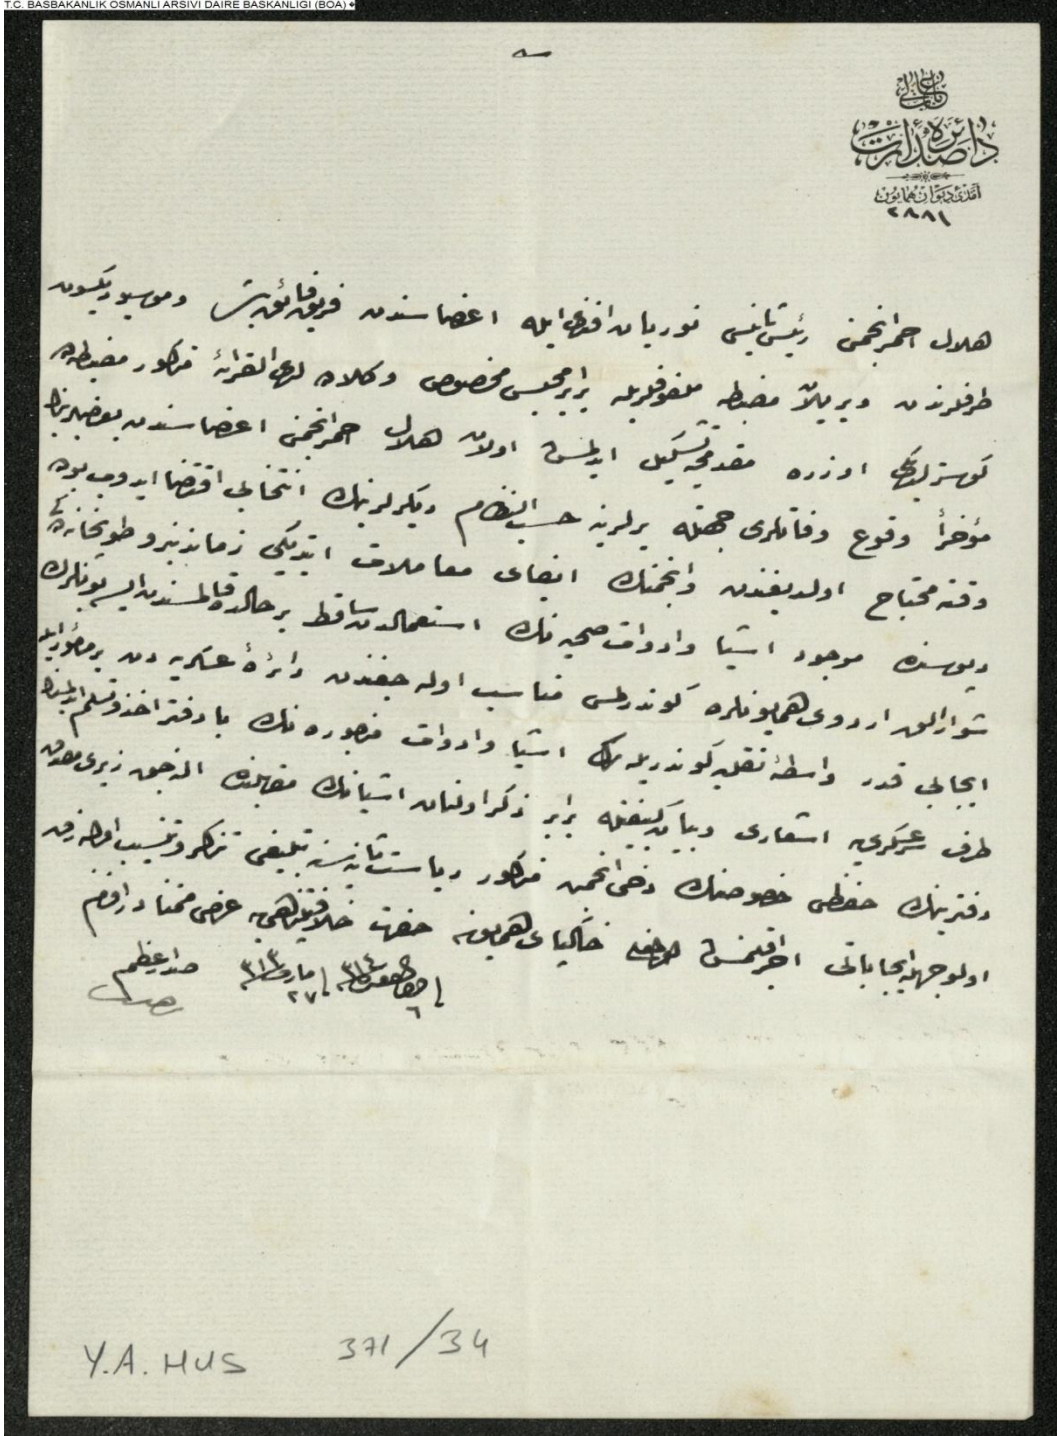 T.C. BASBAKANLIK OSMANLI ARSIVI DAIRE BASKANLIGI (BOA)
باب عالی
دائرهٔ صدارت
آمدی دیوان همایون
٢٨٨١
هلال احمر انجمنی رئیس ثانیسی نوریان افندی ایله اعضاسندن فریق فائق پاشا وموسیو
طرفلرندن ویریلان مضبطه ملفوفلریله برابر مجلس مخصوص وکلاده لدی القرائه مذکور مضبطه‌ده
کوستریلدیکی اوزره مقدمجه تشکیل ایدلمش اولان هلال احمر انجمنی اعضاسندن بعضیلرینک
مؤخراً وقوع وفاتلری جهتله یرلرینه حسب النظام دیکرلرینک انتخابی اقتضا ایدوب بوده
وقته محتاج اولدیغندن وانجمنک ایفای معاملات ایتدیکی زماندنبرو طوپخانه‌ده
دپوسنده موجود اشیا وادوات صحیه‌نک استعمالدن ساقط بر حالده قالمسندن ایسه بونلرک
اردوی همایونلره کوندرلمسی مناسب اوله جغندن دائرهٔ عسکریه دن بر مأمور ایله
ایجابی قدر واسطهٔ نقلیه کوندریله رک اشیا وادوات مزبوره نک با دفتر اخذ وتسلم ایدلمسنک
طرف سر عسکری‌یه اشعاری وبیان کیفیتله برابر ذکر اولنان اشیانک مقابلنده الله جق زیری مصدق
دفترینک حفظی خصوصنک دخی انجمن مذکور ریاست ثانیه سنه تبلیغی تذکر وتنسیب اولنه رق
اولوجهله ایجاباتی اجرا قلنمش اولمغله خاکپای همایونه حضرت خلافتپناهی‌یه عرضی متمنادر افندم
٦ ٣١٤ ٢٧ مارت ٣١٣
صدر اعظم
Y.A. HUS 371/34